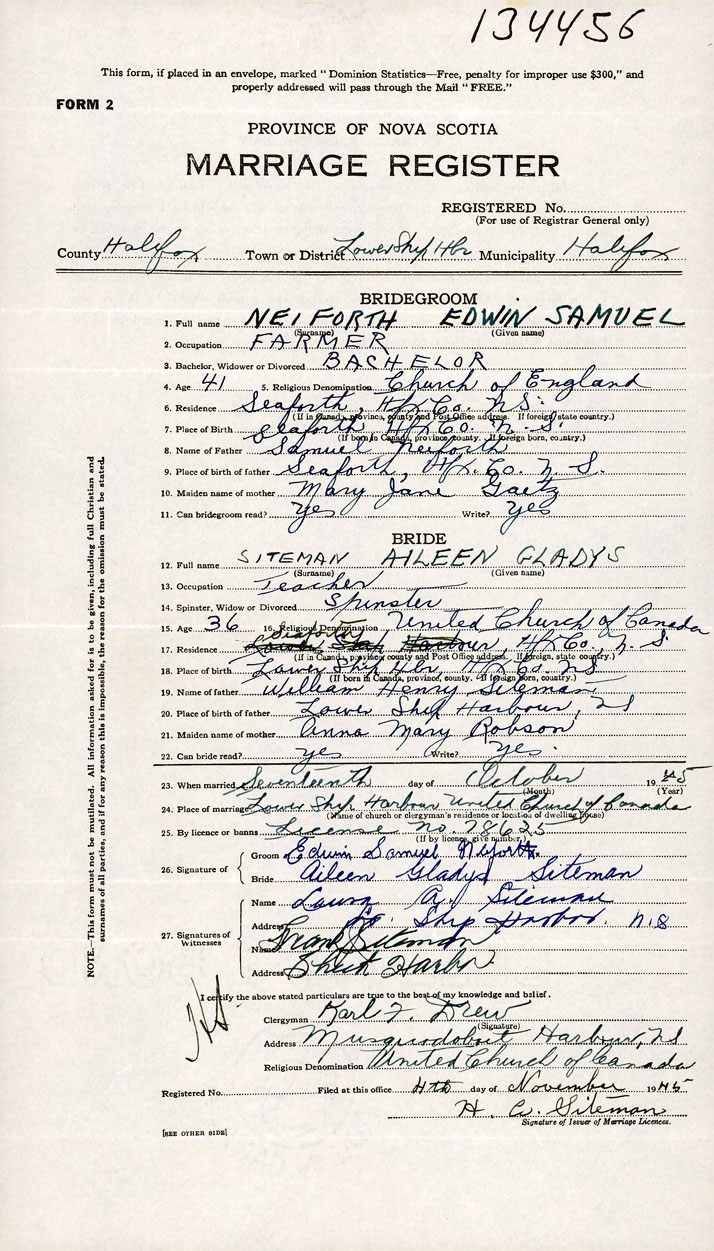 134456
This form, if placed in an envelope, marked "Dominion Statistics—Free, penalty for improper use $300," and
properly addressed will pass through the Mail "FREE."
FORM 2
PROVINCE OF NOVA SCOTIA
MARRIAGE REGISTER
REGISTERED No.
(For use of Registrar General only)
County Halifax Town or District Lower Ship Hbr Municipality Halifax
BRIDEGROOM
1. Full name NEIFORTH EDWIN SAMUEL
(Surname) (Given name)
2. Occupation FARMER
3. Bachelor, Widower or Divorced BACHELOR
4. Age 41 5. Religious Denomination Church of England
6. Residence Seaforth, Hfx Co. N.S.
(If in Canada, province, county and Post Office address. If foreign, state country.)
7. Place of Birth Seaforth Hfx Co. N.S.
(If born in Canada, province, county. If foreign born, country.)
8. Name of Father Samuel Neiforth
9. Place of birth of father Seaforth, Hfx. Co. N.S.
10. Maiden name of mother Mary Jane Gaetz
11. Can bridegroom read? yes Write? yes
BRIDE
12. Full name SITEMAN AILEEN GLADYS
(Surname) (Given name)
13. Occupation Teacher
14. Spinster, Widow or Divorced Spinster
15. Age 36 16. Religious Denomination United Church of Canada
Seaforth
17. Residence Lower Ship Harbour, Hfx Co., N.S
(If in Canada, province, county and Post Office address. If foreign, state country.)
18. Place of birth Lower Ship Hbr, Hfx Co. NS
(If born in Canada, province, county. If foreign born, country.)
19. Name of father William Henry Siteman
20. Place of birth of father Lower Ship Harbour, NS
21. Maiden name of mother Anna Mary Robson
22. Can bride read? yes Write? yes.
23. When married Seventeenth day of October 1945
(Month) (Year)
24. Place of marriage Lower Ship Harbour United Church of Canada
(Name of church or clergyman's residence or location of dwelling house)
25. By licence or banns License no. 78625
(If by licence, give number.)
26. Signature of
Groom Edwin Samuel Neiforth.
Bride Aileen Gladys Siteman
27. Signatures of Witnesses
Name Laura A. Siteman
Address Ship Harbor. N.S
Name Frank Siteman
Address Sheet Harbor
I certify the above stated particulars are true to the best of my knowledge and belief.
Clergyman Karl F. Drew
(Signature)
Address Musquodoboit Harbour, NS
Religious Denomination United Church of Canada
Registered No. Filed at this office 4th day of November 1945
H. C. Siteman
Signature of Issuer of Marriage Licences.
[SEE OTHER SIDE]
NOTE.—This form must not be mutilated. All information asked for is to be given, including full Christian and
surnames of all parties, and if for any reason this is impossible, the reason for the omission must be stated.